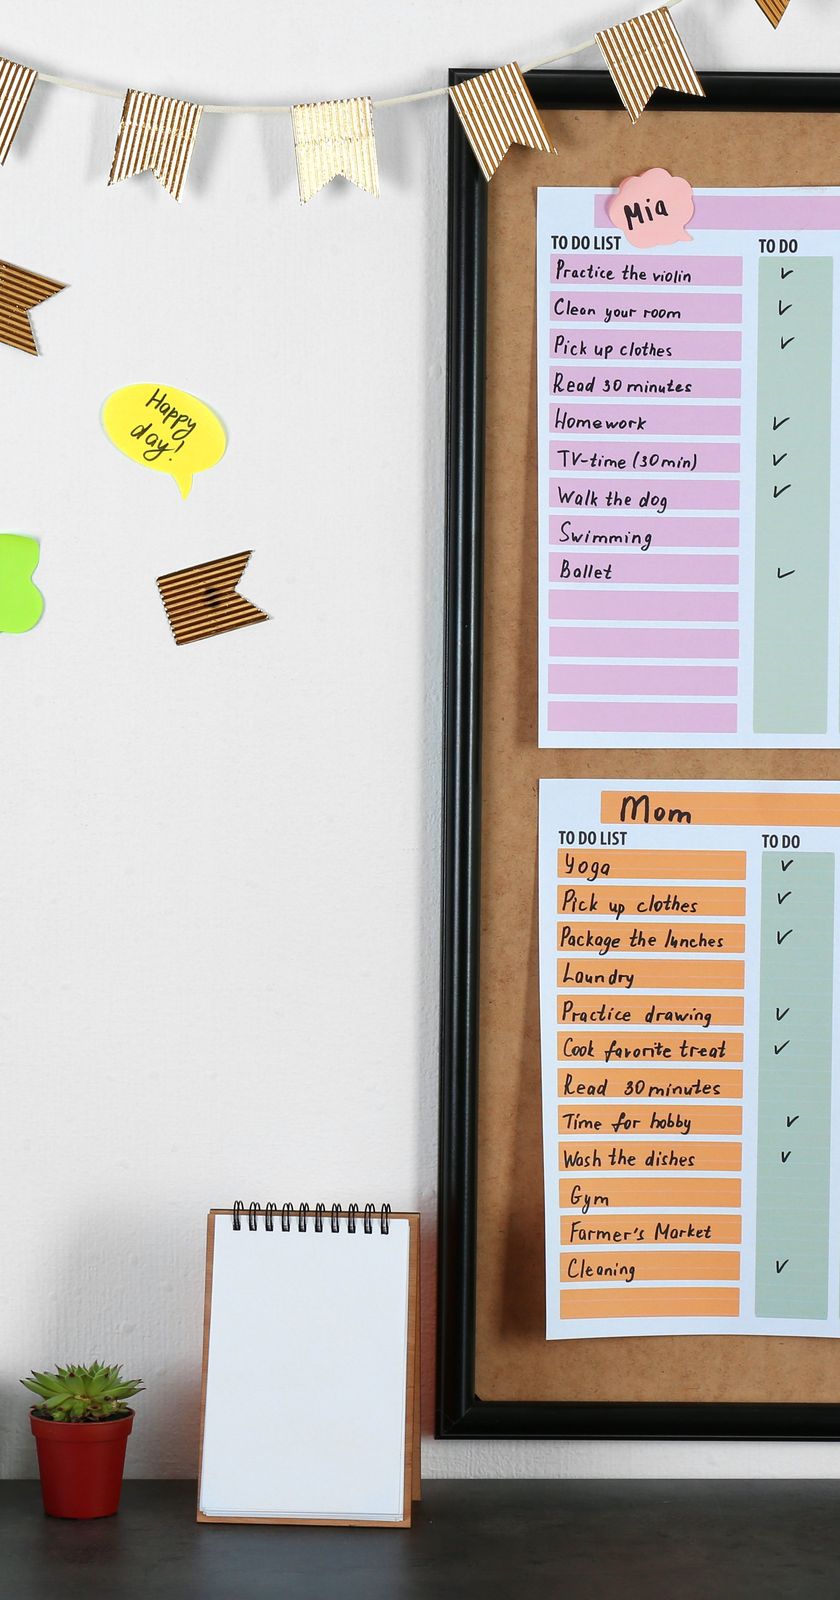 Happy
day!
Mia
TO DO LIST TO DO
Practice the violin ✓
Clean your room ✓
Pick up clothes ✓
Read 30 minutes
Homework ✓
TV-time (30 min) ✓
Walk the dog ✓
Swimming
Ballet ✓
Mom
TO DO LIST TO DO
Yoga ✓
Pick up clothes ✓
Package the lunches ✓
Laundry
Practice drawing ✓
Cook favorite treat ✓
Read 30 minutes
Time for hobby ✓
Wash the dishes ✓
Gym
Farmer's Market
Cleaning ✓